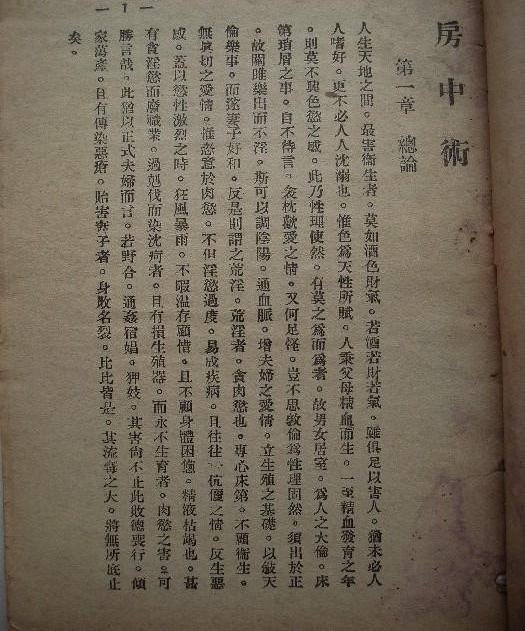 房中術
第一章 總論
人生天地之間。最害衞生者。莫如酒色財氣。若酒若財若氣。雖俱足以害人。猶未必人
人嗜好。更不必人人沈溺也。惟色爲天性所賦。人秉父母精血而生。一至精血發育之年
。則莫不興色慾之感。此乃性理使然。有莫之爲而爲者。故男女居室。爲人之大倫。床
第瑣屑之事。自不待言。衾枕歡愛之情。又何足怪。豈不思敦倫爲性理固然。須出於正
。故關雎樂出而不淫。斯可以調陰陽。通血脈。增夫婦之愛情。立生殖之基礎。以敍天
倫樂事。而遂妻子好和。反是則謂之荒淫。荒淫者。貪肉慾也。專心床第。不顧衞生。
無眞切之愛情。惟慾意於肉慾。不但淫慾過度。易成疾病。且往往一伉儷之情。反生惡
感。蓋以慾性激烈之時。狂風暴雨。不暇温存顧惜。且不顧身體困憊。精液枯竭也。甚
有貪淫慾而廢職業。過剋伐而染沈疴者。且有損生殖器。而永不生育者。肉慾之害。可
勝言哉。此猶以正式夫婦而言。若野合。通姦宿娼。狎妓。其害尙不止此敗德喪行。傾
家蕩產。且有傳染惡瘡。貽害妻子者。身敗名裂。比比皆是。其流毒之大。將無所底止
矣。
— 1 —